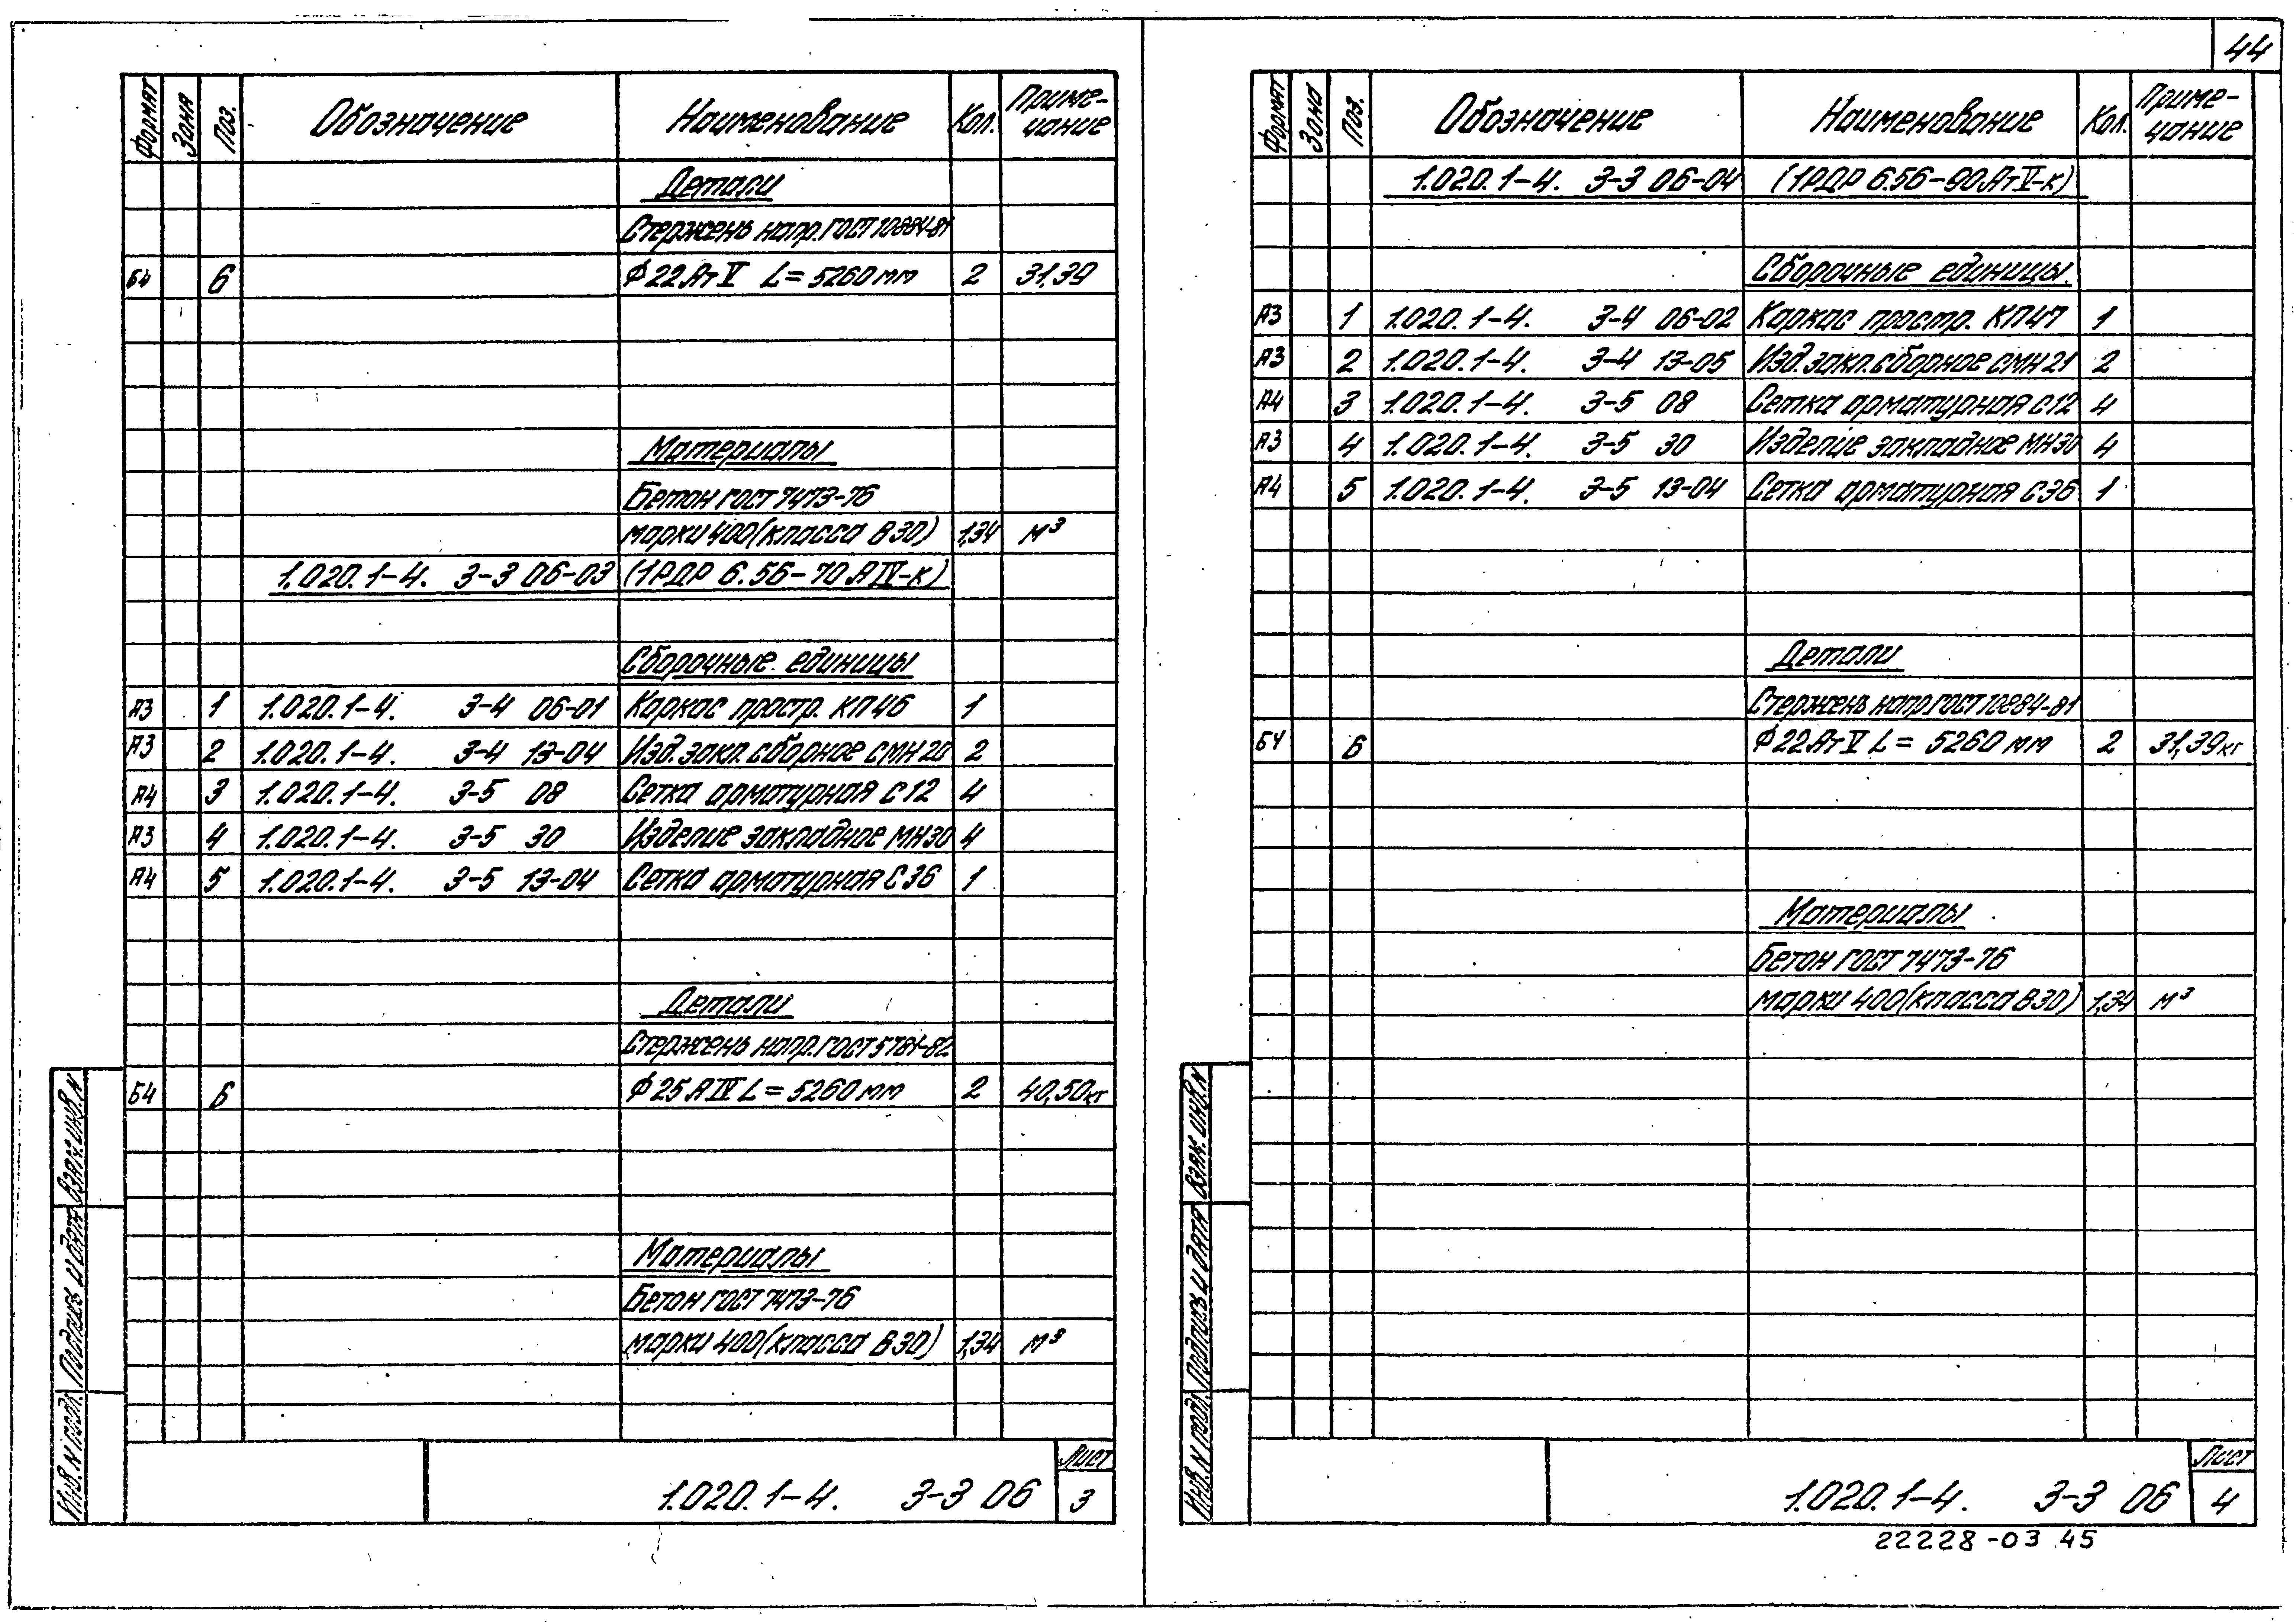 44
Формат Зона Поз. Обозначение Наименование Кол. Приме-
чание
Детали
Стержень напр. ГОСТ 10884-81
Б4 6 ф22АтV L=5260мм 2 31,39
Материалы
Бетон ГОСТ 7473-76
марки 400(класса В30) 1,34 м³
1.020.1-4. 3-3 06-03 (1РДР 6.56-70АIV-к)
Сборочные единицы
А3 1 1.020.1-4. 3-4 06-01 Каркас простр. КП46 1
А3 2 1.020.1-4. 3-4 13-04 Изд. закл. сборное СМН20 2
А4 3 1.020.1-4. 3-5 08 Сетка арматурная С12 4
А3 4 1.020.1-4. 3-5 30 Изделие закладное МН30 4
А4 5 1.020.1-4. 3-5 13-04 Сетка арматурная С36 1
Детали
Стержень напр. ГОСТ 5781-82
Б4 6 ф25АIV L=5260мм 2 40,50кг
Материалы
Бетон ГОСТ 7473-76
марки 400(класса В30) 1,34 м³
Инв. N подл. Подпись и дата Взам. инв. N
1.020.1-4. 3-3 06
Лист
3
Формат Зона Поз. Обозначение Наименование Кол. Приме-
чание
1.020.1-4. 3-3 06-04 (1РДР 6.56-90АтV-к)
Сборочные единицы
А3 1 1.020.1-4. 3-4 06-02 Каркас простр. КП47 1
А3 2 1.020.1-4. 3-4 13-05 Изд. закл. сборное СМН21 2
А4 3 1.020.1-4. 3-5 08 Сетка арматурная С12 4
А3 4 1.020.1-4. 3-5 30 Изделие закладное МН30 4
А4 5 1.020.1-4. 3-5 13-04 Сетка арматурная С36 1
Детали
Стержень напр. ГОСТ 10884-81
Б4 6 ф22АтV L=5260мм 2 31,39кг
Материалы
Бетон ГОСТ 7473-76
марки 400(класса В30) 1,34 м³
Инв. N подл. Подпись и дата Взам. инв. N
1.020.1-4. 3-3 06
Лист
4
22228-03 45